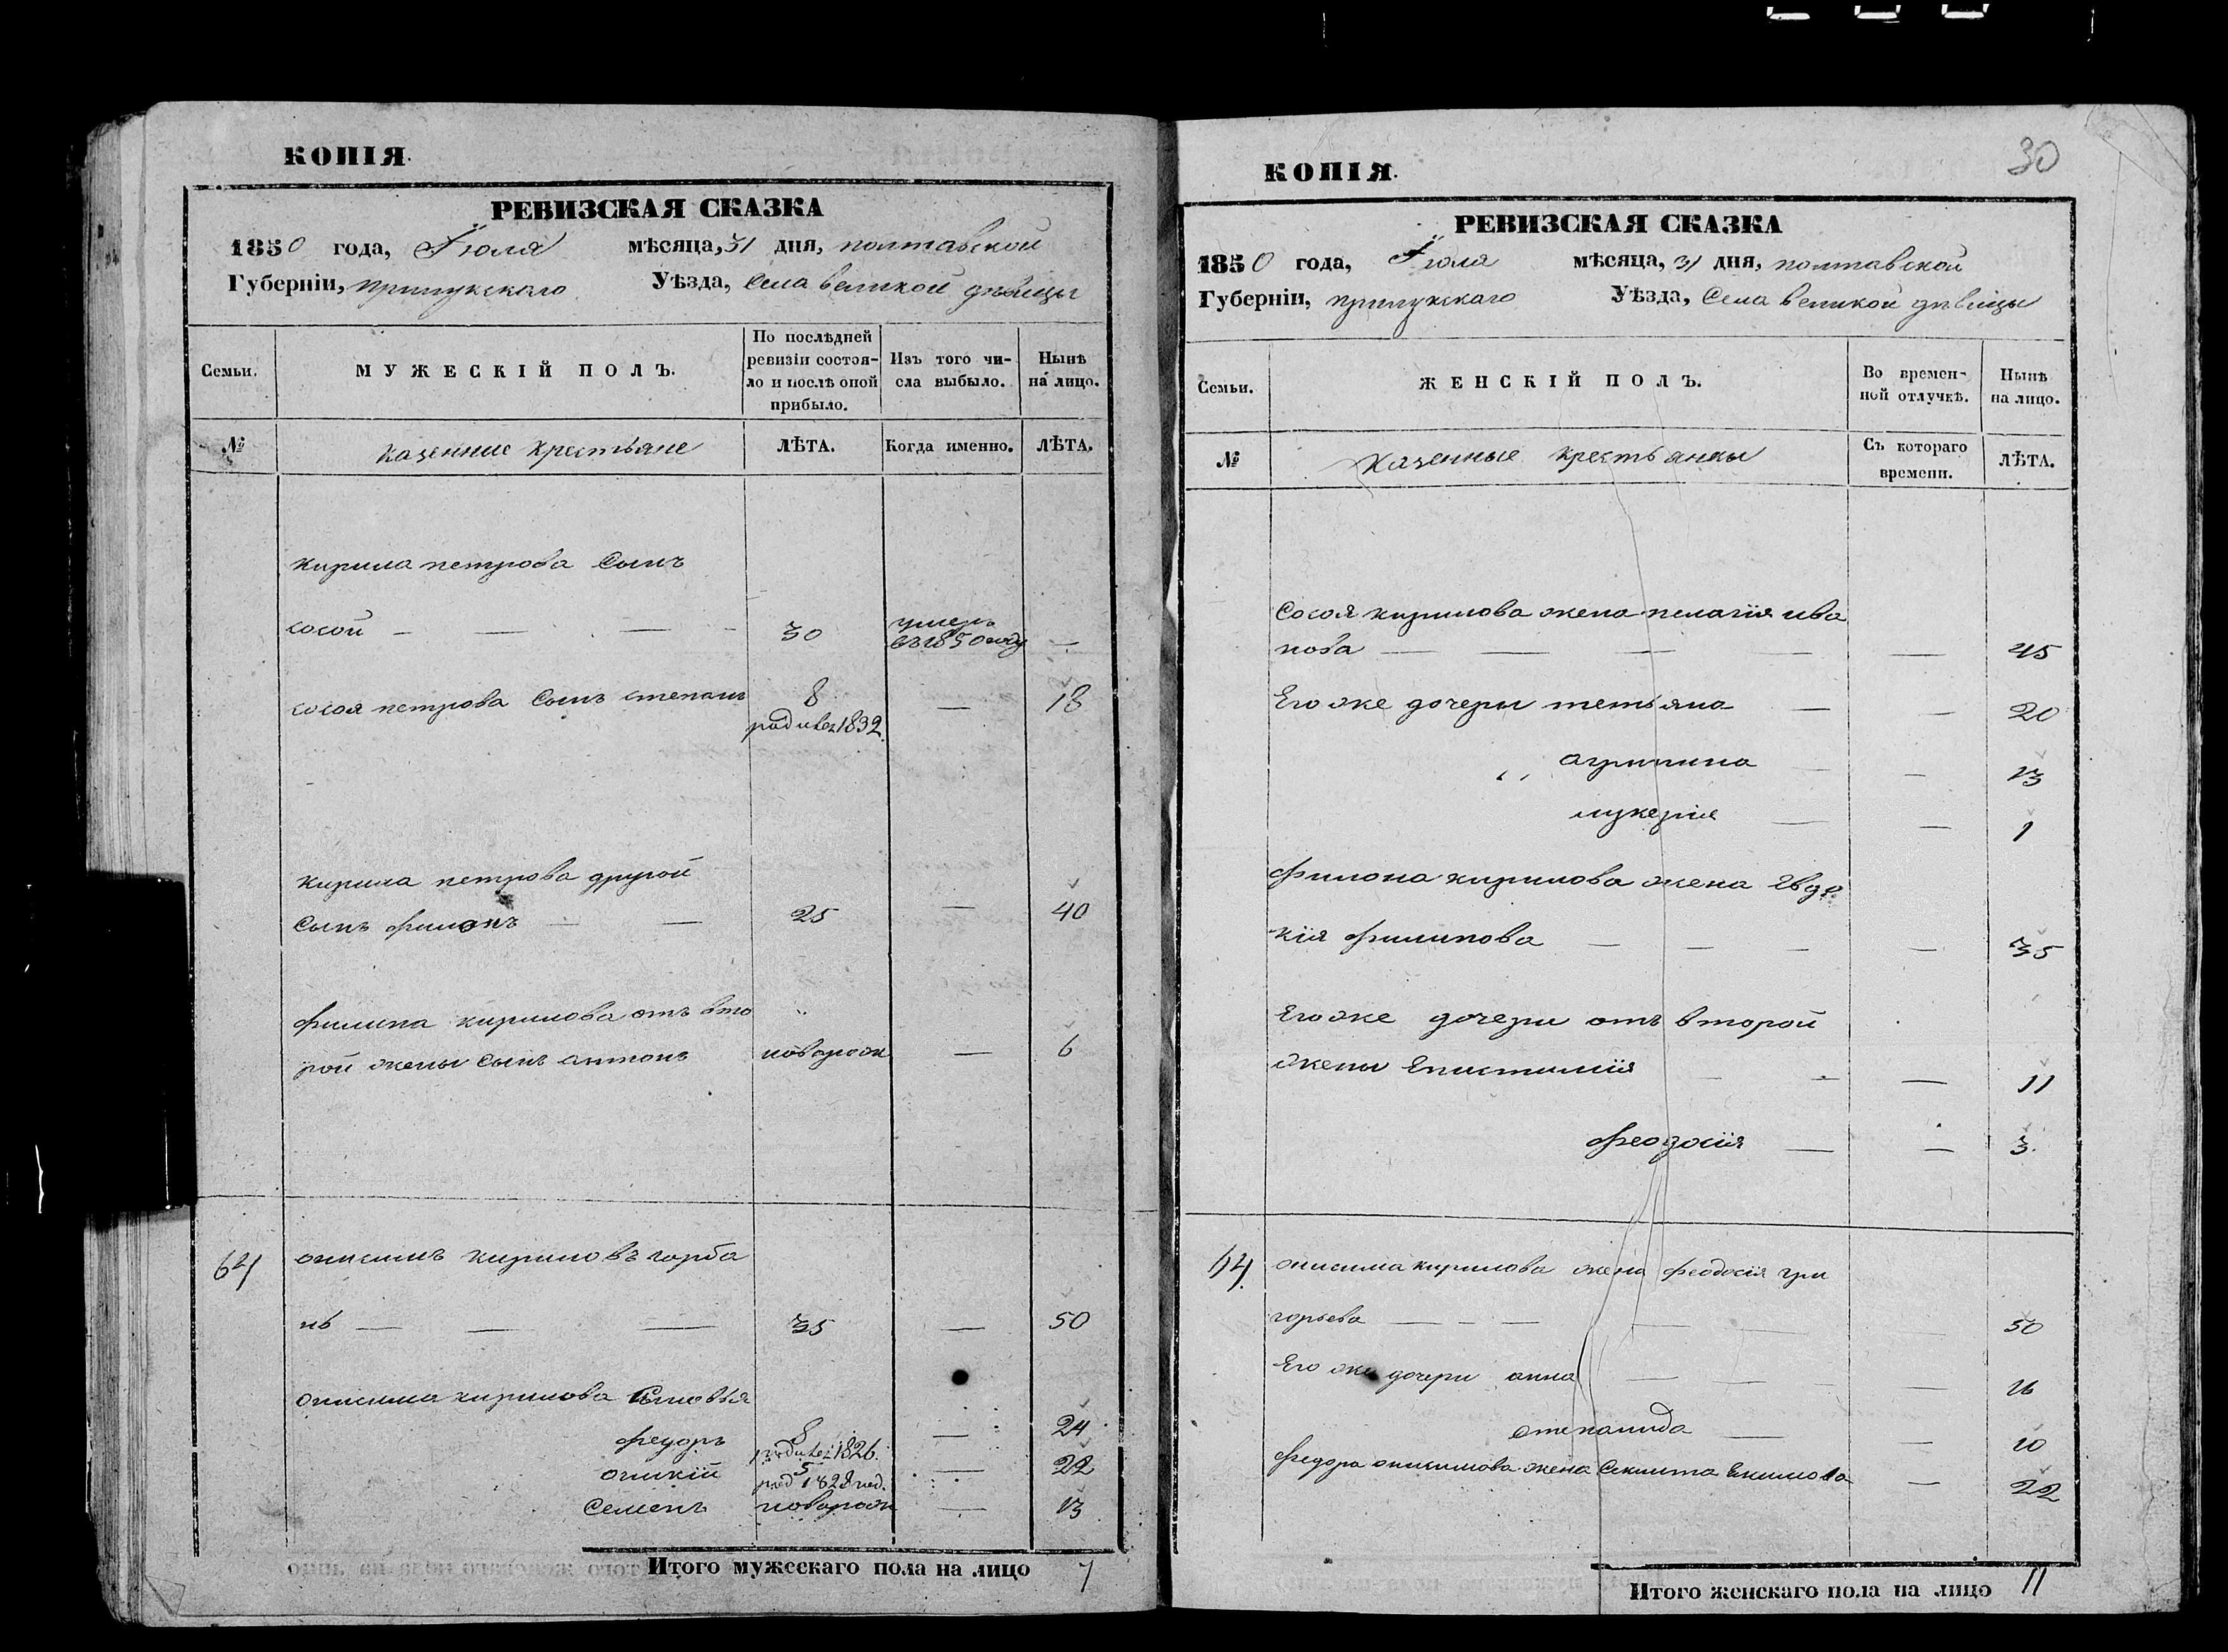 КОПІЯ.
РЕВИЗСКАЯ СКАЗКА
1850 года, Іюля мѣсяца, 31 дня, полтавской
Губерніи, прилукскаго Уѣзда, Села великой дѣвицы
Семьи.
МУЖЕСКІЙ ПОЛЪ.
По послѣдней ревизіи состоя-
ло и послѣ оной прибыло.
Изъ того чи-
сла выбыло.
Нынѣ
на лицо.
№
казенние крестьяне
ЛѢТА.
Когда именно.
ЛѢТА.
кирила петрова Сынъ
сосой — — — 30 умеръ въ 1850 году —
сосоя петрова Сынъ степанъ 8 — 18
родивсz 1832.
кирила петрова другой
Сынъ филонъ — — 25 — 40
филипа кирилова отъ вто
рой жены Сынъ антонъ новорож — 6
64 онисимъ кириловъ горба
нь — — — 35 — 50
онисима кирилова Сыновья
федоръ 8 — 24
родивсz 1826.
5 — 22
род 1828 год.
Семенъ новорож — 13
Итого мужескаго пола на лицо 7
30
КОПІЯ.
РЕВИЗСКАЯ СКАЗКА
1850 года, Іюля мѣсяца, 31 дня, полтавской
Губерніи, прилукскаго Уѣзда, Села великой дѣвицы
Семьи.
ЖЕНСКІЙ ПОЛЪ.
Во времен-
ной отлучкѣ.
Нынѣ
на лицо.
№
казенные крестьянкы
Съ котораго
времени.
ЛѢТА.
Сосоя кирилова жена пелагія ива
нова — — — — — 45
Его же дочеры тетьяна — — 20
,, агрипина — — 13
лукерія — — 1
Филона кирилова жена Евдо
кія филипова — — — — 35
Его же дочери отъ второй
жены Епистимія — — — 11
феодосія — — 3.
64. онисима кирилова жена феодосія гри
горьева — — — — — — 50
Его же дочери анна — — — 16
степанида — — 10
федора онисимова жена Секлита Екимова — 22
Итого женскаго пола на лицо 11